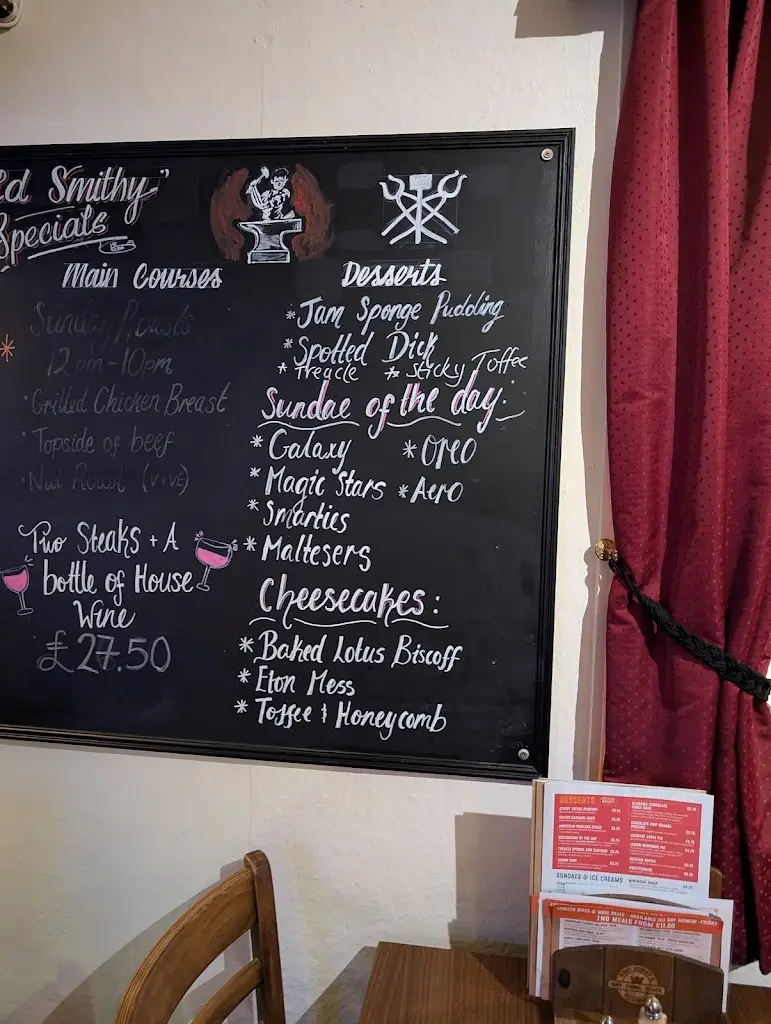 ed Smithy"
Specials
Main Courses
Sunday Roasts
12pm-10pm
· Grilled Chicken Breast
· Topside of beef
· Nut Roast (V+VE)
Two Steaks + A
bottle of House
Wine
£27.50
Desserts
* Jam Sponge Pudding
* Spotted Dick
* Treacle * Sticky Toffee
Sundae of the day:
* Galaxy * Oreo
* Magic Stars * Aero
* Smarties
* Maltesers
Cheesecakes:
* Baked Lotus Biscoff
* Eton Mess
* Toffee & Honeycomb
DESSERTS
SUNDAES & ICE CREAMS
TWO MEALS FROM £11.00